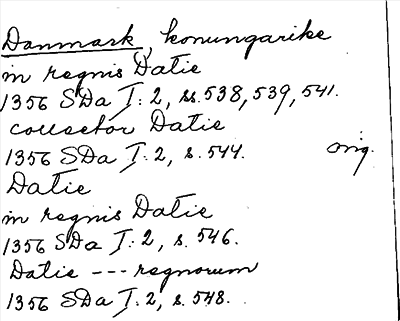 Danmark, konungarike
in regnis Datie
1356 SDa I:2, ss.538,539,541.
collector Datie
1356 SDa I:2, s.544. orig.
Datie
in regnis Datie
1356 SDa I:2, s.546.
Datie --- regnorum
1356 SDa I:2, s.548.